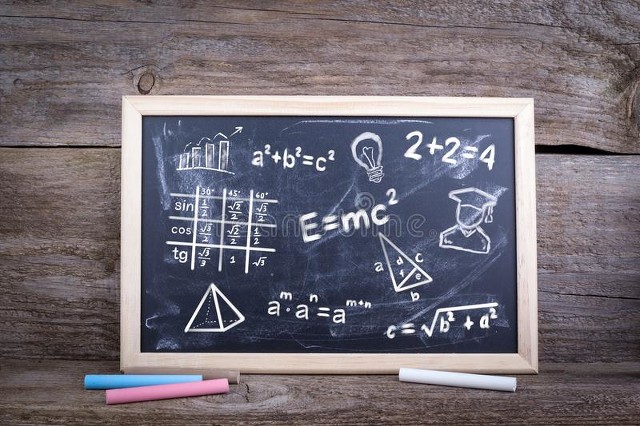 a²+b²=c²
2+2=4
30° 45° 60°
sin 1/2 √2/2 √3/2
cos √3/2 √2/2 1/2
tg √3/3 1 √3
E=mc²
a c d e f b
aᵐ·aⁿ=aᵐ⁺ⁿ
c=√b²+a²